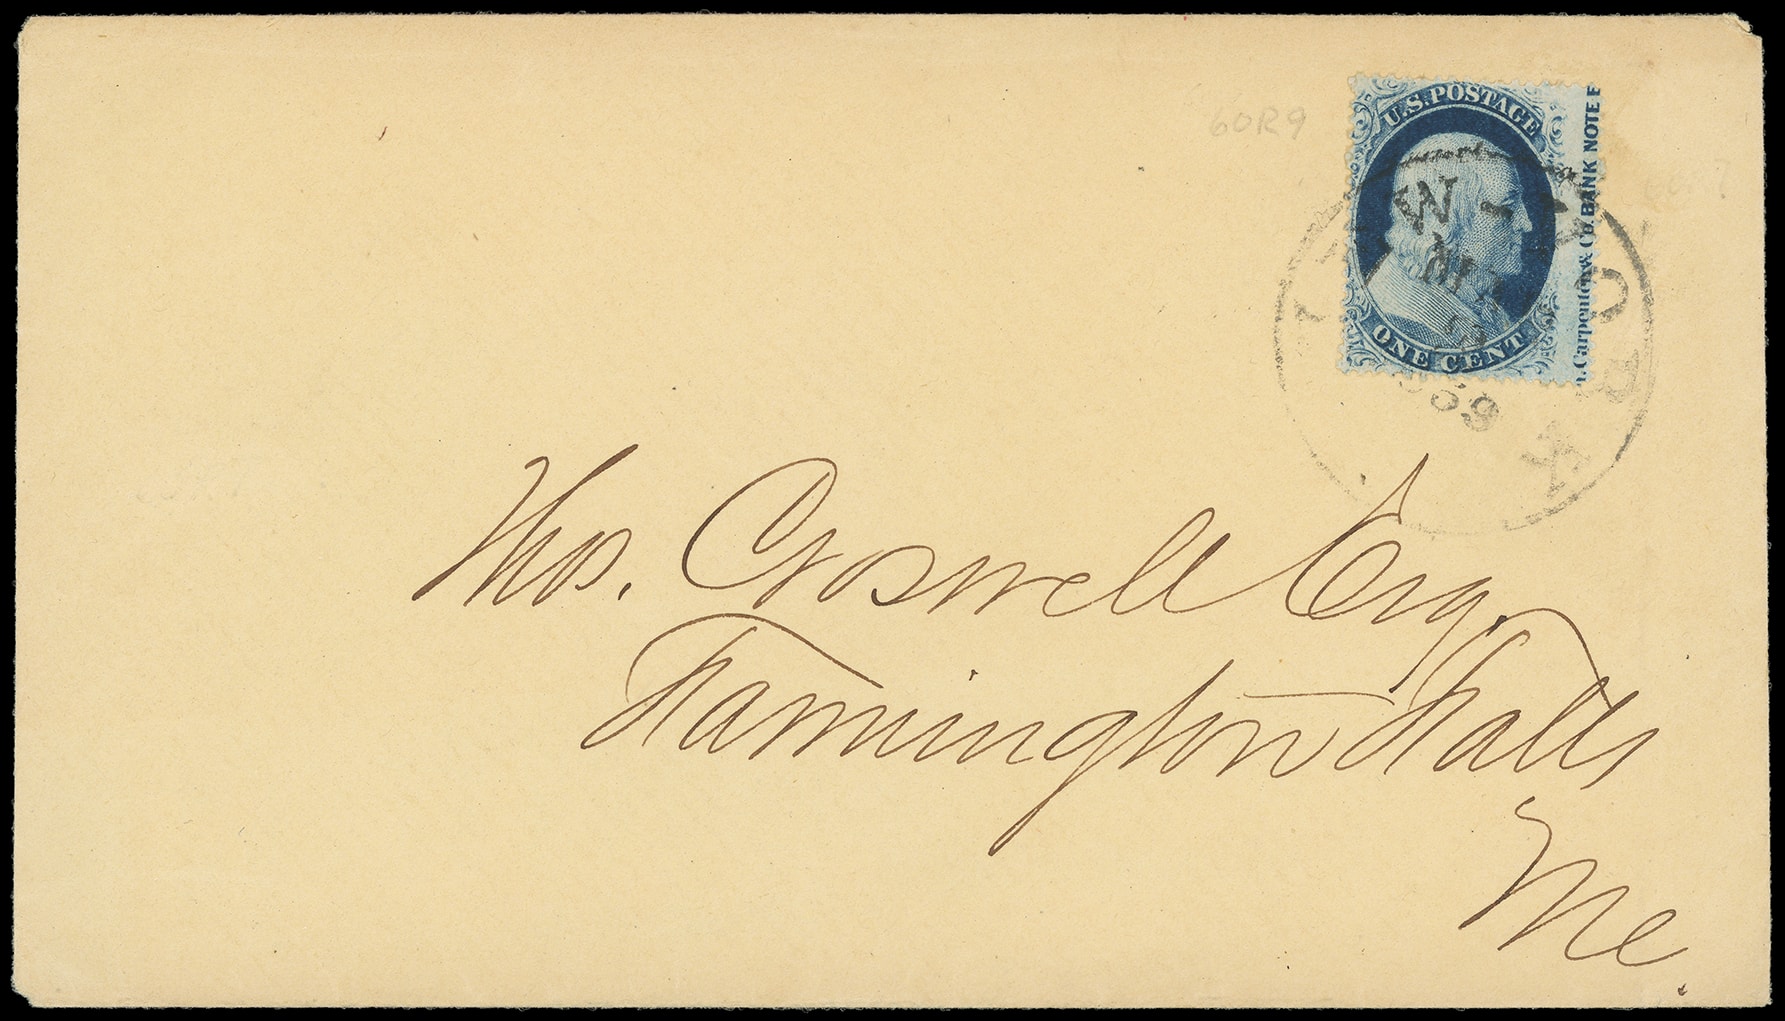 60R9
U.S. POSTAGE
ONE CENT.
n. Carpenter & Co. BANK NOTE E
NEW-YORK
Thos. Croswell Esq.
Farmington Falls
Me.